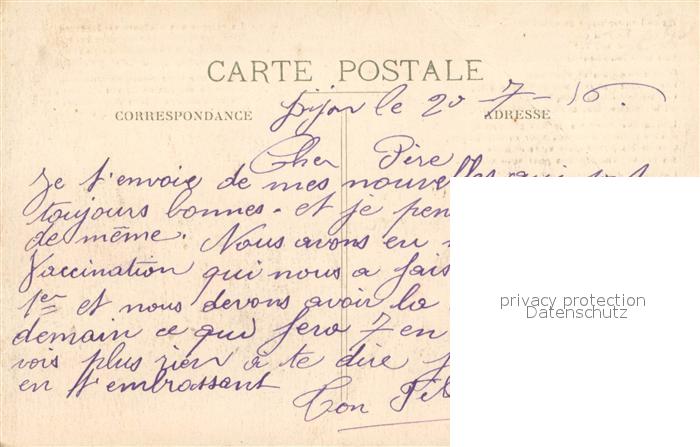 CARTE POSTALE
Dijon le 20-7-16.
CORRESPONDANCE
ADRESSE
Cher Père
Je t'envoie de mes nouvelles qui
toujours bonnes. et je
de même. Nous avons eu
Vaccination qui nous a fais
1er et nous devons avoir la
demain ce qui fera 7 en
vois plus rien a te dire
en t'embrassant
Ton
privacy protection
Datenschutz